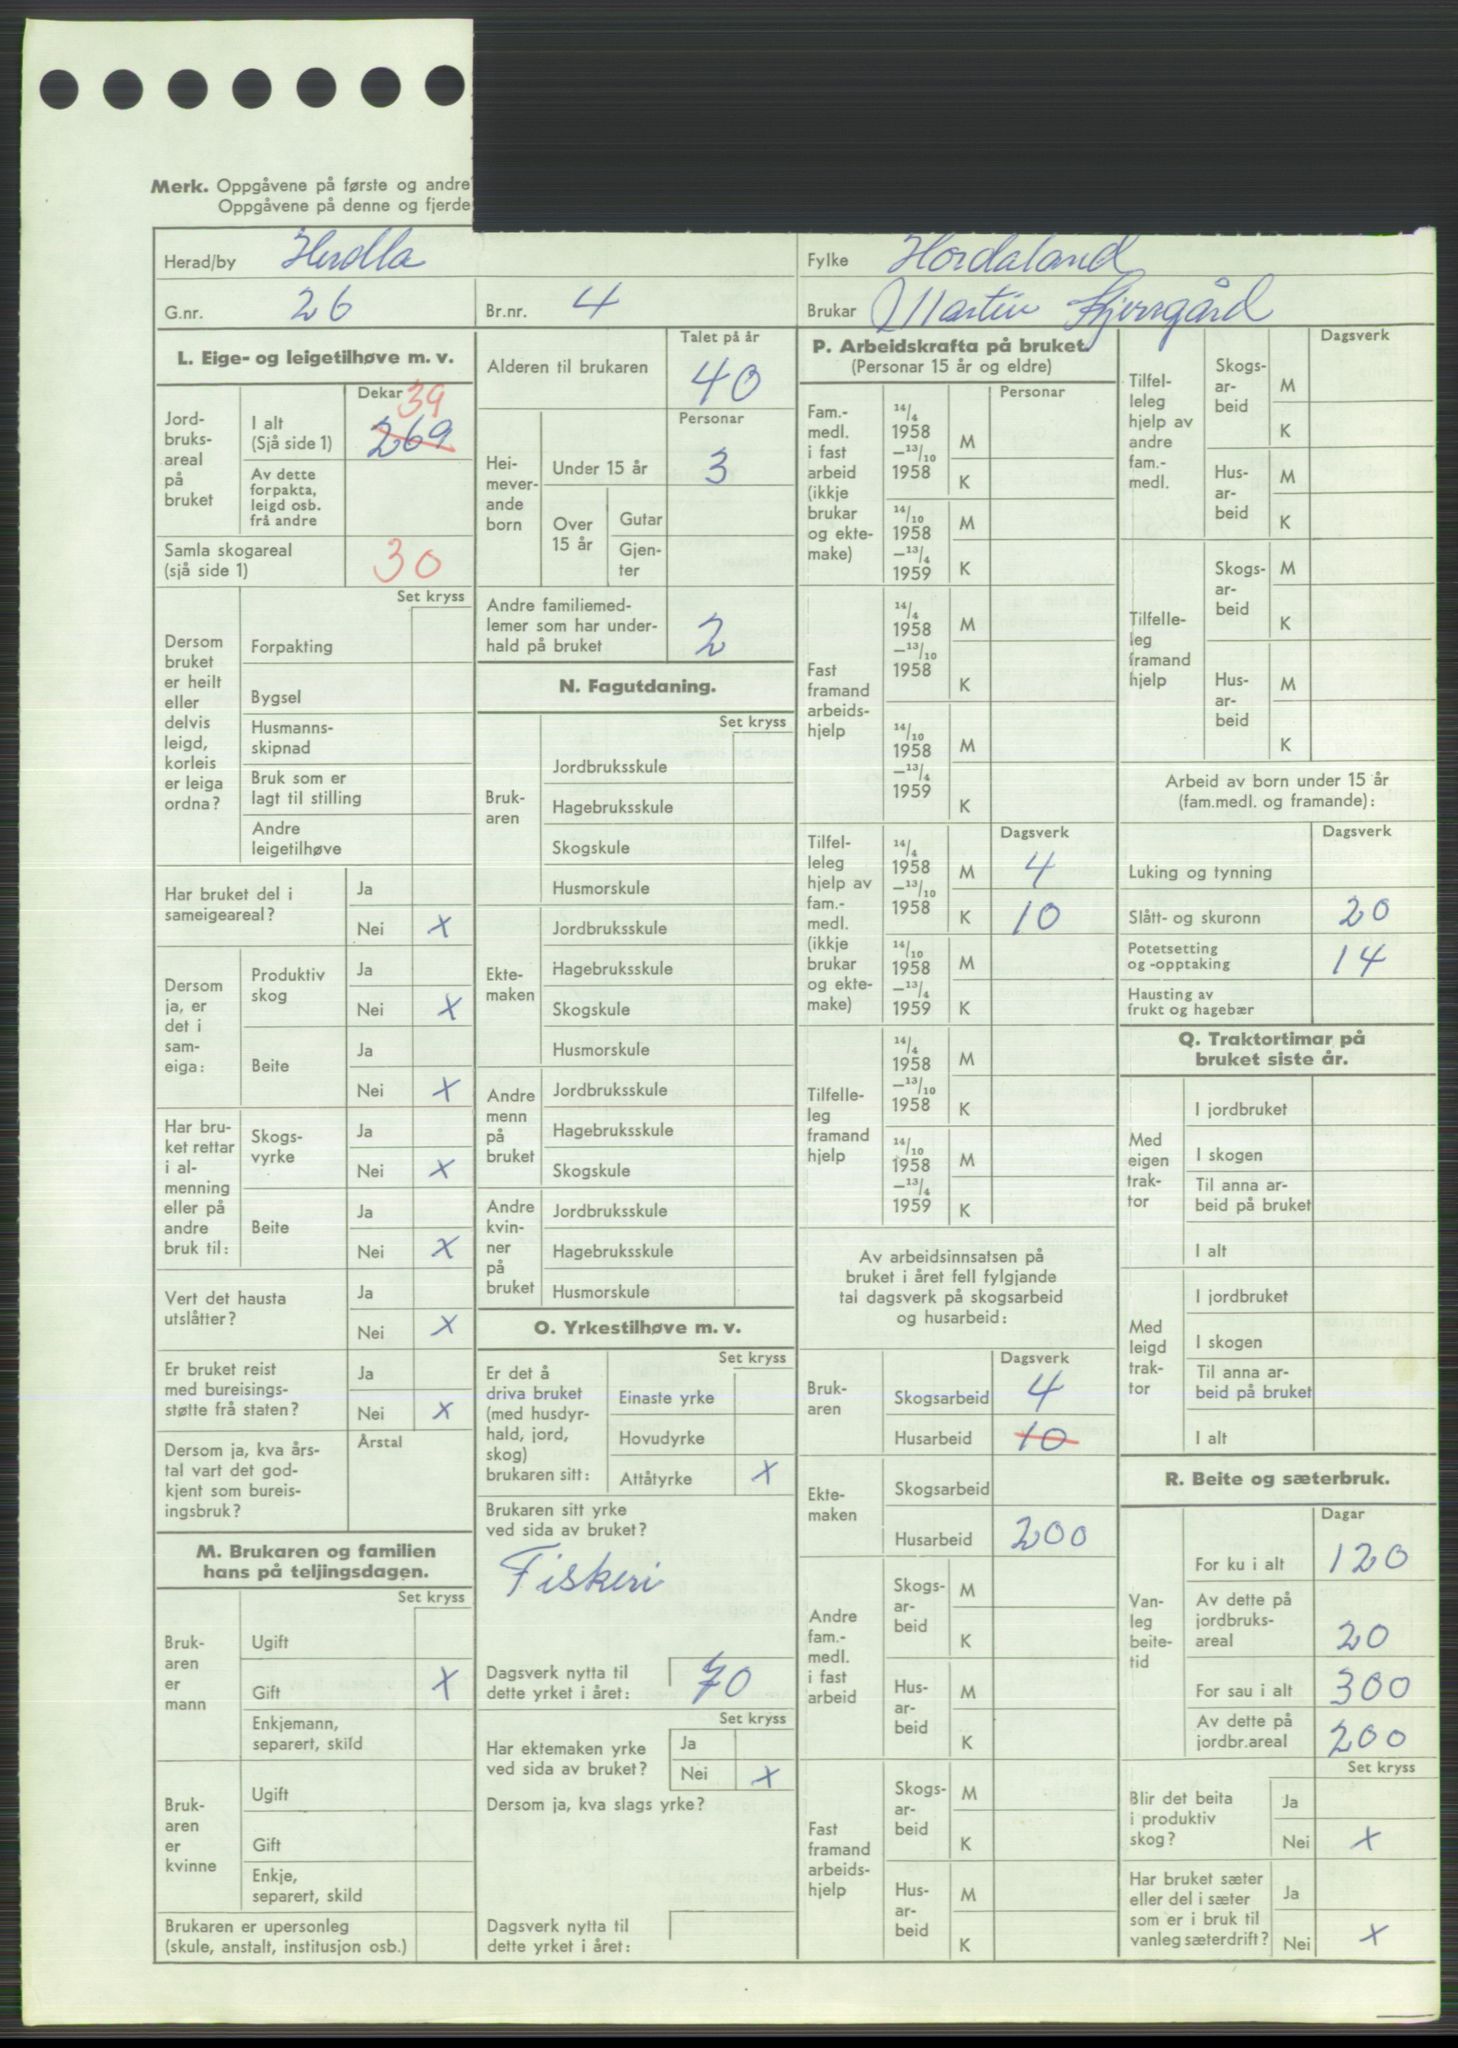 Merk. Oppgåvene på første og andre
Oppgåvene på denne og fjerde
Herad/by Herdla
Fylke Hordaland
G.nr. 26
Br.nr. 4
Brukar Martin
L. Eige- og leigetilhøve m. v.
Dekar
Jord-
bruks-
areal
på
bruket
I alt
(Sjå side 1)
39
269
Av dette
forpakta,
leigd osb.
frå andre
Samla skogareal
(sjå side 1)
30
Set kryss
Dersom
bruket
er heilt
eller
delvis
leigd,
korleis
er leiga
ordna?
Forpakting
Bygsel
Husmanns-
skipnad
Bruk som er
lagt til stilling
Andre
leigetilhøve
Har bruket del i
sameigeareal?
Ja
Nei X
Dersom
ja, er
det i
sam-
eiga:
Produktiv
skog
Ja
Nei X
Beite
Ja
Nei X
Har bru-
ket rettar
i al-
menning
eller på
andre
bruk til:
Skogs-
vyrke
Ja
Nei X
Beite
Ja
Nei X
Vert det hausta
utslåtter?
Ja
Nei X
Er bruket reist
med bureisings-
støtte frå staten?
Ja
Nei X
Dersom ja, kva års-
tal vart det god-
kjent som bureis-
ingsbruk?
Årstal
M. Brukaren og familien
hans på teljingsdagen.
Set kryss
Bruk-
aren
er
mann
Ugift
Gift X
Enkjemann,
separert, skild
Bruk-
aren
er
kvinne
Ugift
Gift
Enkje,
separert, skild
Brukaren er upersonleg
(skule, anstalt, institusjon osb.)
Talet på år
Alderen til brukaren 40
Personar
Hei-
mever-
ande
born
Under 15 år 3
Over
15 år
Gutar
Gjen-
ter
Andre familiemed-
lemer som har under-
hald på bruket
2
N. Fagutdaning.
Set kryss
Bruk-
aren
Jordbruksskule
Hagebruksskule
Skogskule
Husmorskule
Ekte-
maken
Jordbruksskule
Hagebruksskule
Skogskule
Husmorskule
Andre
menn
på
bruket
Jordbruksskule
Hagebruksskule
Skogskule
Andre
kvin-
ner
på
bruket
Jordbruksskule
Hagebruksskule
Husmorskule
O. Yrkestilhøve m. v.
Set kryss
Er det å
driva bruket
(med husdyr-
hald, jord,
skog)
brukaren sitt:
Einaste yrke
Hovudyrke
Attåtyrke X
Brukaren sitt yrke
ved sida av bruket?
Fiskeri
Dagsverk nytta til
dette yrket i året: 70
Set kryss
Har ektemaken yrke
ved sida av bruket?
Ja
Nei X
Dersom ja, kva slags yrke?
Dagsverk nytta til
dette yrket i året:
P. Arbeidskrafta på bruket.
(Personar 15 år og eldre)
Personar
Fam.-
medl.
i fast
arbeid
(ikkje
brukar
og ekte-
make)
14/4
1958
—13/10
1958
M
K
14/10
1958
—13/4
1959
M
K
Fast
framand
arbeids-
hjelp
14/4
1958
—13/10
1958
M
K
14/10
1958
—13/4
1959
M
K
Dagsverk
Tilfel-
leleg
hjelp av
fam.-
medl.
(ikkje
brukar
og ekte-
make)
14/4
1958
—13/10
1958
M 4
K 10
14/10
1958
—13/4
1959
M
K
Tilfelle-
leg
framand
hjelp
14/4
1958
—13/10
1958
M
K
14/10
1958
—13/4
1959
M
K
Av arbeidsinnsatsen på
bruket i året fell fylgjande
tal dagsverk på skogsarbeid
og husarbeid:
Dagsverk
Bruk-
aren
Skogsarbeid 4
Husarbeid 10
Ekte-
maken
Skogsarbeid
Husarbeid 200
Andre
fam.-
medl.
i fast
arbeid
Skogs-
ar-
beid
M
K
Hus-
ar-
beid
M
K
Fast
framand
arbeids-
hjelp
Skogs-
ar-
beid
M
K
Hus-
ar-
beid
M
K
Dagsverk
Tilfel-
leleg
hjelp av
andre
fam.-
medl.
Skogs-
ar-
beid
M
K
Hus-
ar-
beid
M
K
Tilfelle-
leg
framand
hjelp
Skogs-
ar-
beid
M
K
Hus-
ar-
beid
M
K
Arbeid av born under 15 år
(fam.medl. og framande):
Dagsverk
Luking og tynning
Slått- og skuronn 20
Potetsetting
og -opptaking 14
Hausting av
frukt og hagebær
Q. Traktortimar på
bruket siste år.
Med
eigen
trak-
tor
I jordbruket
I skogen
Til anna ar-
beid på bruket
I alt
Med
leigd
trak-
tor
I jordbruket
I skogen
Til anna ar-
beid på bruket
I alt
R. Beite og sæterbruk.
Dagar
Van-
leg
beite-
tid
For ku i alt 120
Av dette på
jordbruks-
areal 20
For sau i alt 300
Av dette på
jordbr.areal 200
Set kryss
Blir det beita
i produktiv
skog?
Ja
Nei X
Har bruket sæter
eller del i sæter
som er i bruk til
vanleg sæterdrift?
Ja
Nei X